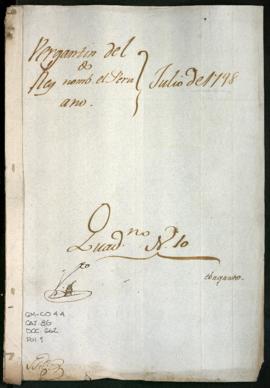 Vergantin del
Rey nomb.do el Peru
ano.
Julio de 1798
Quad.no N. 10
GM-CO 44
CAJ. 86
DOC. 662
FOL 1